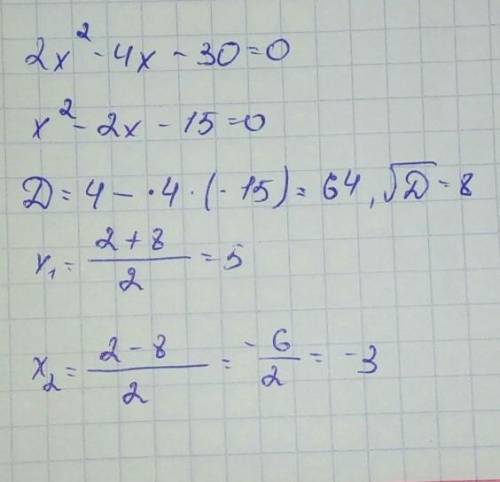 2x² - 4x - 30 = 0
x² - 2x - 15 = 0
D = 4 - · 4 · (- 15) = 64, √D = 8
x₁ = (2 + 8)/2 = 5
x₂ = (2 - 8)/2 = - 6/2 = - 3